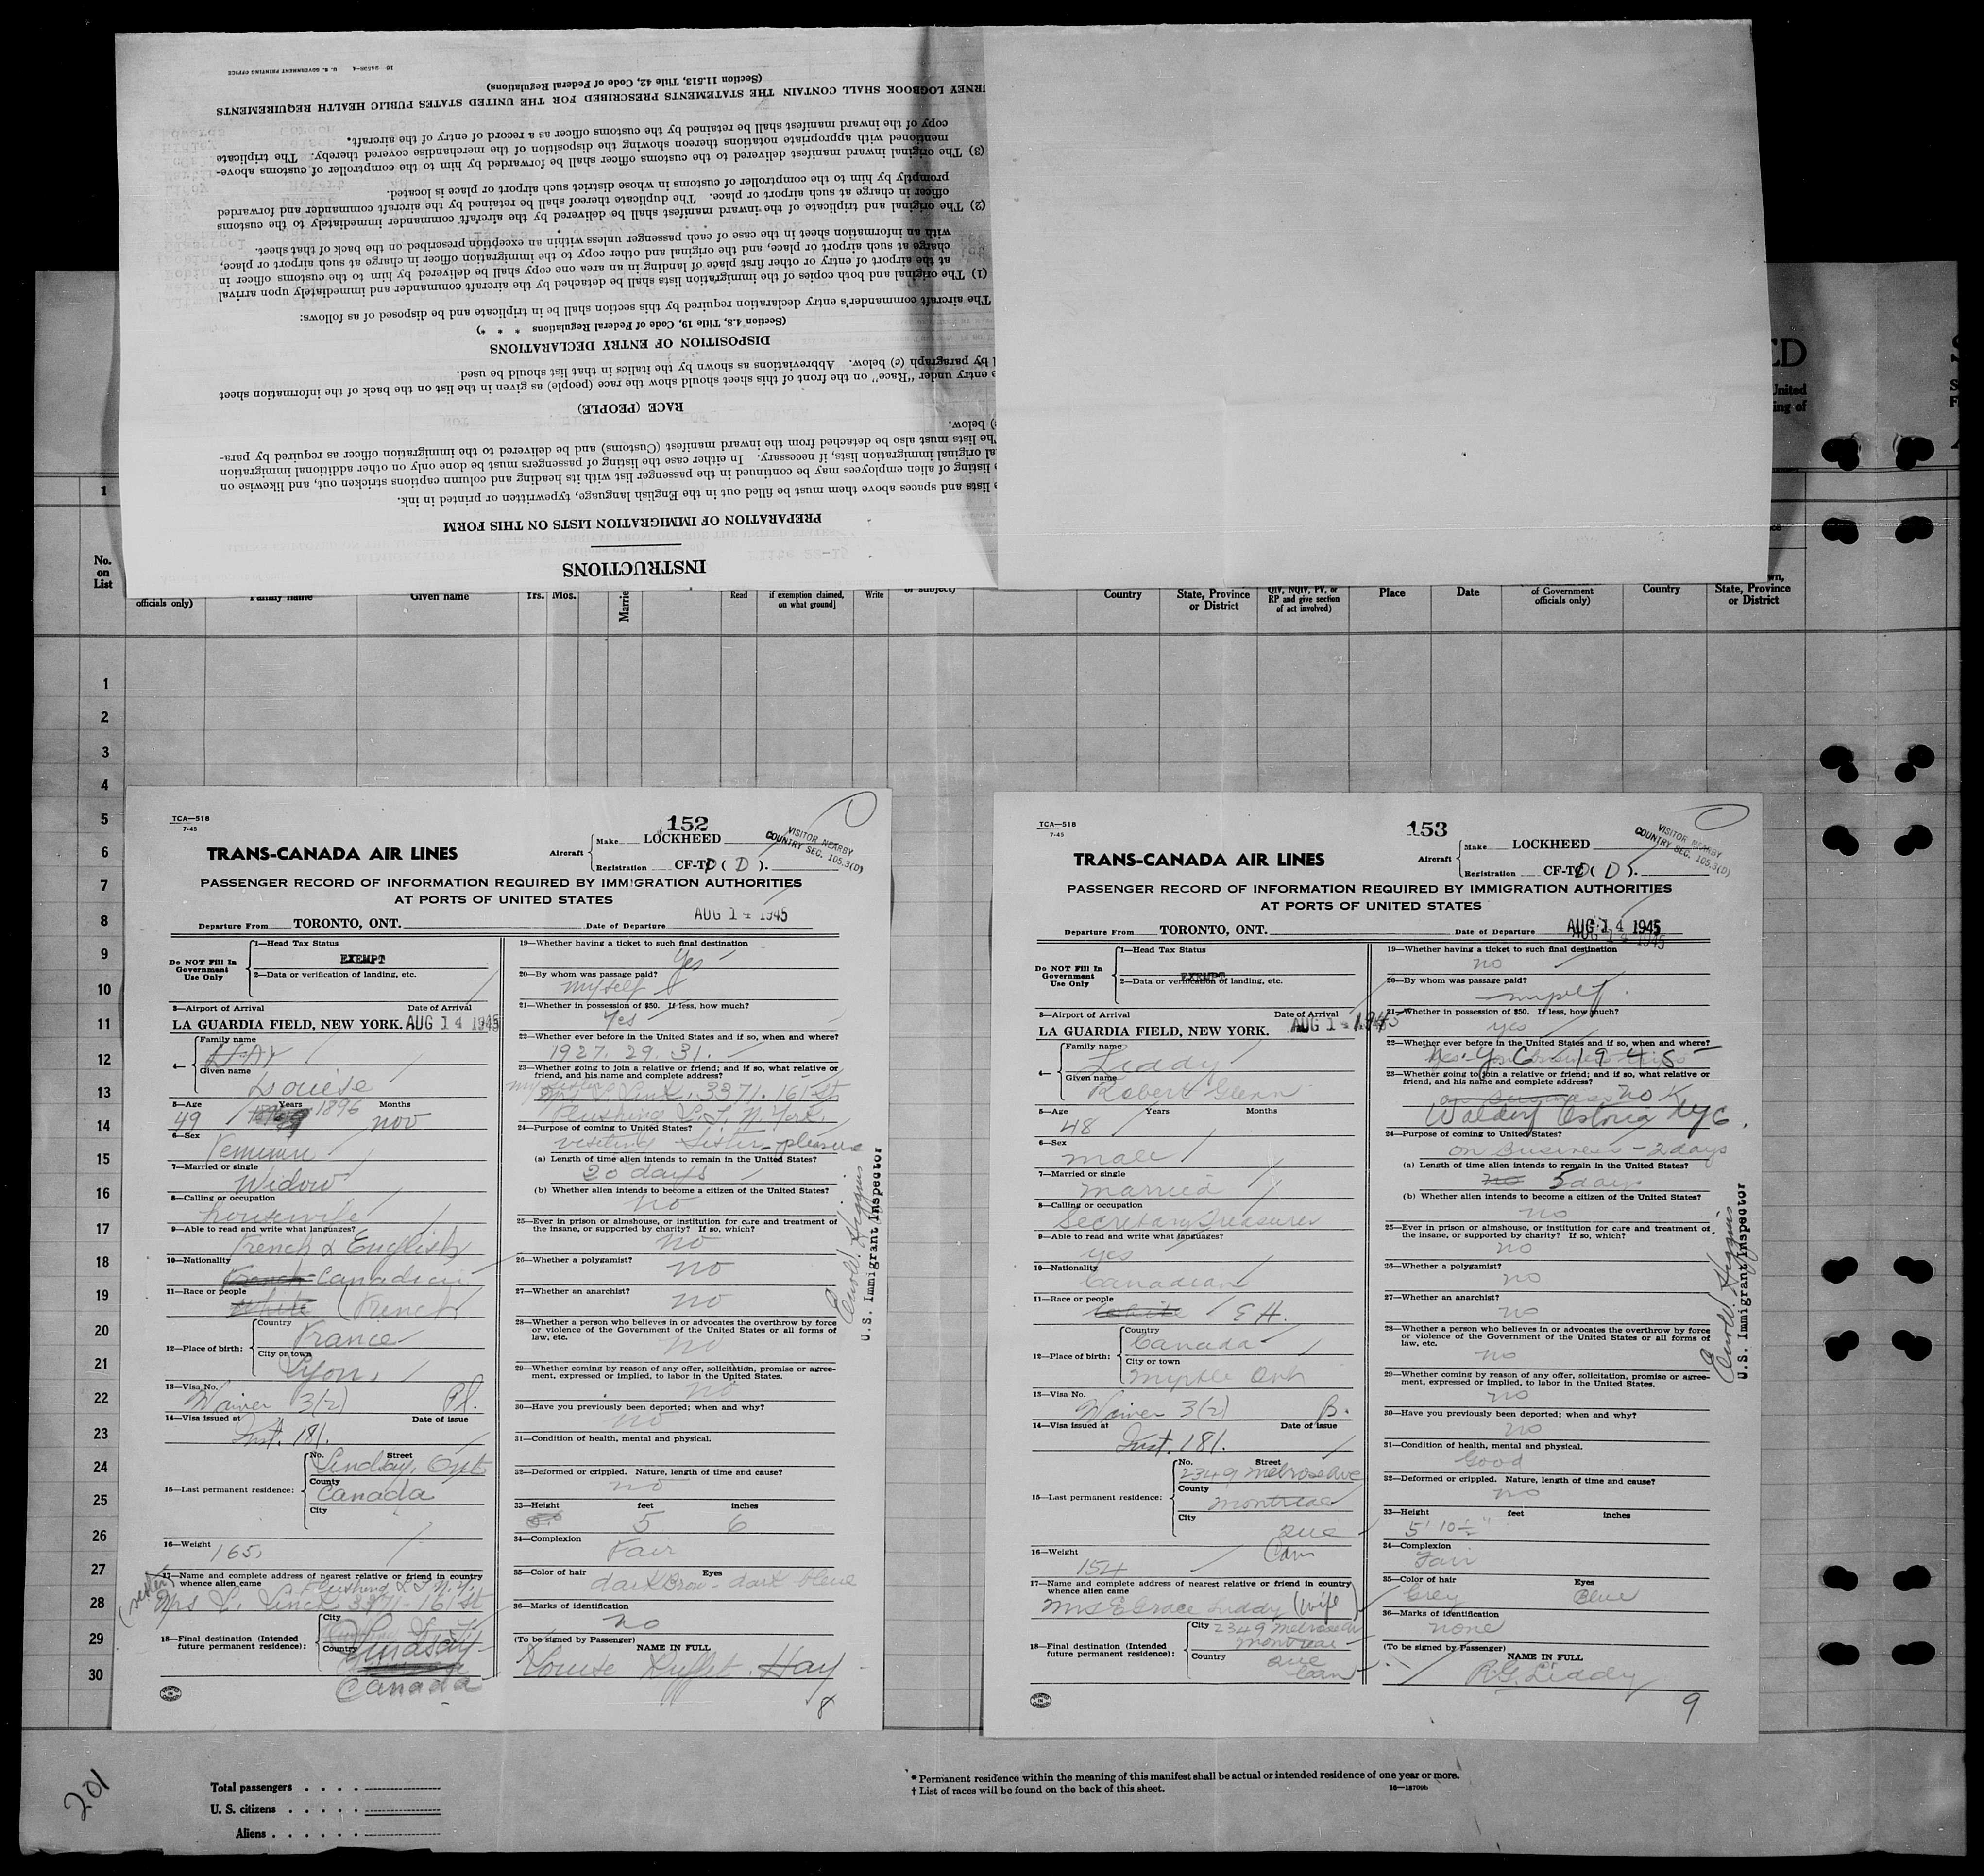 INSTRUCTIONS
PREPARATION OF IMMIGRATION LISTS ON THIS FORM
lists and spaces above them must be filled out in the English language, typewritten or printed in ink.
listing of alien employees may be continued in the passenger list with its heading and column captions stricken out, and likewise on
al original immigration lists, if necessary. In either case the listing of passengers must be done only on other additional immigration
he lists must also be detached from the inward manifest (Customs) and be delivered to the immigration officer as required by para-
) below.
RACE (PEOPLE)
e entry under "Race" on the front of this sheet should show the race (people) as given in the list on the back of the information sheet
by paragraph (c) below. Abbreviations as shown by the italics in that list should be used.
DISPOSITION OF ENTRY DECLARATIONS
(Section 4.8, Title 19, Code of Federal Regulations * * *)
The aircraft commander's entry declaration required by this section shall be in triplicate and be disposed of as follows:
(1) The original and both copies of the immigration lists shall be detached by the aircraft commander and immediately upon arrival
at the airport of entry or other first place of landing in an area one copy shall be delivered by him to the customs officer in
charge at such airport or place, and the original and other copy to the immigration officer in charge at such airport or place,
with an information sheet in the case of each passenger unless within an exception prescribed on the back of that sheet.
(2) The original and triplicate of the inward manifest shall be delivered by the aircraft commander immediately to the customs
officer in charge at such airport or place. The duplicate thereof shall be retained by the aircraft commander and forwarded
promptly by him to the comptroller of customs in whose district such airport or place is located.
(3) The original inward manifest delivered to the customs officer shall be forwarded by him to the comptroller of customs above-
mentioned with appropriate notations thereon showing the disposition of the merchandise covered thereby. The triplicate
copy of the inward manifest shall be retained by the customs officer as a record of entry of the aircraft.
RNEY LOGBOOK SHALL CONTAIN THE STATEMENTS PRESCRIBED FOR THE UNITED STATES PUBLIC HEALTH REQUIREMENTS
(Section 11.513, Title 42, Code of Federal Regulations)
U. S. GOVERNMENT PRINTING OFFICE
ED
United
ing of
1
No. on List
officials only)
Family name
Given name
Yrs. Mos.
Read
if exemption claimed, on what ground]
Write
or subject)
Country
State, Province or District
QIV, NQIV, PV, or RP and give section of act involved)
Place
Date
of Government officials only)
Country
State, Province or District
1
2
3
4
5
6
7
8
9
10
11
12
13
14
15
16
17
18
19
20
21
22
23
24
25
26
27
28
29
30
TCA—518
7-45
152
TRANS-CANADA AIR LINES
Aircraft
Make LOCKHEED
Registration CF-TC ( D ).
VISITOR NEARBY
COUNTRY SEC. 105.3(D)
PASSENGER RECORD OF INFORMATION REQUIRED BY IMMIGRATION AUTHORITIES
AT PORTS OF UNITED STATES
Departure From TORONTO, ONT. Date of Departure AUG 14 1945
Do NOT Fill In Government Use Only
1—Head Tax Status
EXEMPT
2—Data or verification of landing, etc.
3—Airport of Arrival Date of Arrival
LA GUARDIA FIELD, NEW YORK. AUG 14 1945
4— Family name
HAY
Given name
Louise
5—Age Years Months
49 1896 nov
6—Sex
7—Married or single
Widow
8—Calling or occupation
housewife
9—Able to read and write what languages?
French & English
10—Nationality
French Canadian
11—Race or people
White French
12—Place of birth: Country
France
City or town
Lyon
13—Visa No.
Waiver 3(2) Pl.
14—Visa issued at Date of issue
Inst. 181.
15—Last permanent residence: No. Street
Lindsay, Ont
County
Canada
City
16—Weight
165
17—Name and complete address of nearest relative or friend in country whence alien came
(sister) Flushing L I N.Y.
3371-161 St
18—Final destination (Intended future permanent residence): City
Lindsay
Country
Canada
19—Whether having a ticket to such final destination
Yes
20—By whom was passage paid?
myself
21—Whether in possession of $50. If less, how much?
Yes
22—Whether ever before in the United States and if so, when and where?
1927. 29. 31.
23—Whether going to join a relative or friend; and if so, what relative or friend, and his name and complete address?
my sister
3371. 161 St
Flushing L.I. N. York.
24—Purpose of coming to United States?
visiting sister - pleasure
(a) Length of time alien intends to remain in the United States?
20 days
(b) Whether alien intends to become a citizen of the United States?
no
25—Ever in prison or almshouse, or institution for care and treatment of the insane, or supported by charity? If so, which?
no
26—Whether a polygamist?
no
27—Whether an anarchist?
no
28—Whether a person who believes in or advocates the overthrow by force or violence of the Government of the United States or all forms of law, etc.
no
29—Whether coming by reason of any offer, solicitation, promise or agreement, expressed or implied, to labor in the United States.
no
30—Have you previously been deported; when and why?
no
31—Condition of health, mental and physical.
32—Deformed or crippled. Nature, length of time and cause?
no
33—Height feet inches
5 6
34—Complexion
Fair
35—Color of hair Eyes
dark Brow - dark blue
36—Marks of identification
no
(To be signed by Passenger) NAME IN FULL
Louise Hay
U.S. Immigrant Inspector
8
TCA—518
7-45
153
TRANS-CANADA AIR LINES
Aircraft
Make LOCKHEED
Registration CF-TC ( D ).
VISITOR NEARBY
COUNTRY SEC. 105.3(D)
PASSENGER RECORD OF INFORMATION REQUIRED BY IMMIGRATION AUTHORITIES
AT PORTS OF UNITED STATES
Departure From TORONTO, ONT. Date of Departure AUG 14 1945
AUG 14 1945
Do NOT Fill In Government Use Only
1—Head Tax Status
EXEMPT
2—Data or verification of landing, etc.
3—Airport of Arrival Date of Arrival
LA GUARDIA FIELD, NEW YORK. AUG 14 1945
4— Family name
Liddy
Given name
Robert Glenn
5—Age Years Months
48
6—Sex
male
7—Married or single
married
8—Calling or occupation
Secretary Treasurer
9—Able to read and write what languages?
yes
10—Nationality
Canadian
11—Race or people
White
12—Place of birth: Country
Canada
City or town
Myrtle Ont
13—Visa No.
Waiver 3(2) B.
14—Visa issued at Date of issue
Inst. 181.
15—Last permanent residence: No. Street
2349 Melrose Ave
County
Montreal
City
Que
Can
16—Weight
154
17—Name and complete address of nearest relative or friend in country whence alien came
Mrs E Grace Liddy (wife)
18—Final destination (Intended future permanent residence): City
2349 Melrose Av
Montreal
Country
Que
Can
19—Whether having a ticket to such final destination
no
20—By whom was passage paid?
myself
21—Whether in possession of $50. If less, how much?
yes
22—Whether ever before in the United States and if so, when and where?
N. Y. C. 1945
23—Whether going to join a relative or friend; and if so, what relative or friend, and his name and complete address?
on business no
Waldorf Astoria NYC.
24—Purpose of coming to United States?
on business - 2 days
(a) Length of time alien intends to remain in the United States?
no days
(b) Whether alien intends to become a citizen of the United States?
no
25—Ever in prison or almshouse, or institution for care and treatment of the insane, or supported by charity? If so, which?
no
26—Whether a polygamist?
no
27—Whether an anarchist?
no
28—Whether a person who believes in or advocates the overthrow by force or violence of the Government of the United States or all forms of law, etc.
no
29—Whether coming by reason of any offer, solicitation, promise or agreement, expressed or implied, to labor in the United States.
no
30—Have you previously been deported; when and why?
no
31—Condition of health, mental and physical.
Good
32—Deformed or crippled. Nature, length of time and cause?
no
33—Height feet inches
5' 10½"
34—Complexion
Fair
35—Color of hair Eyes
Grey Blue
36—Marks of identification
none
(To be signed by Passenger) NAME IN FULL
R.G. Liddy
U.S. Immigrant Inspector
9
201
Total passengers
U. S. citizens
Aliens
* Permanent residence within the meaning of this manifest shall be actual or intended residence of one year or more.
† List of races will be found on the back of this sheet.